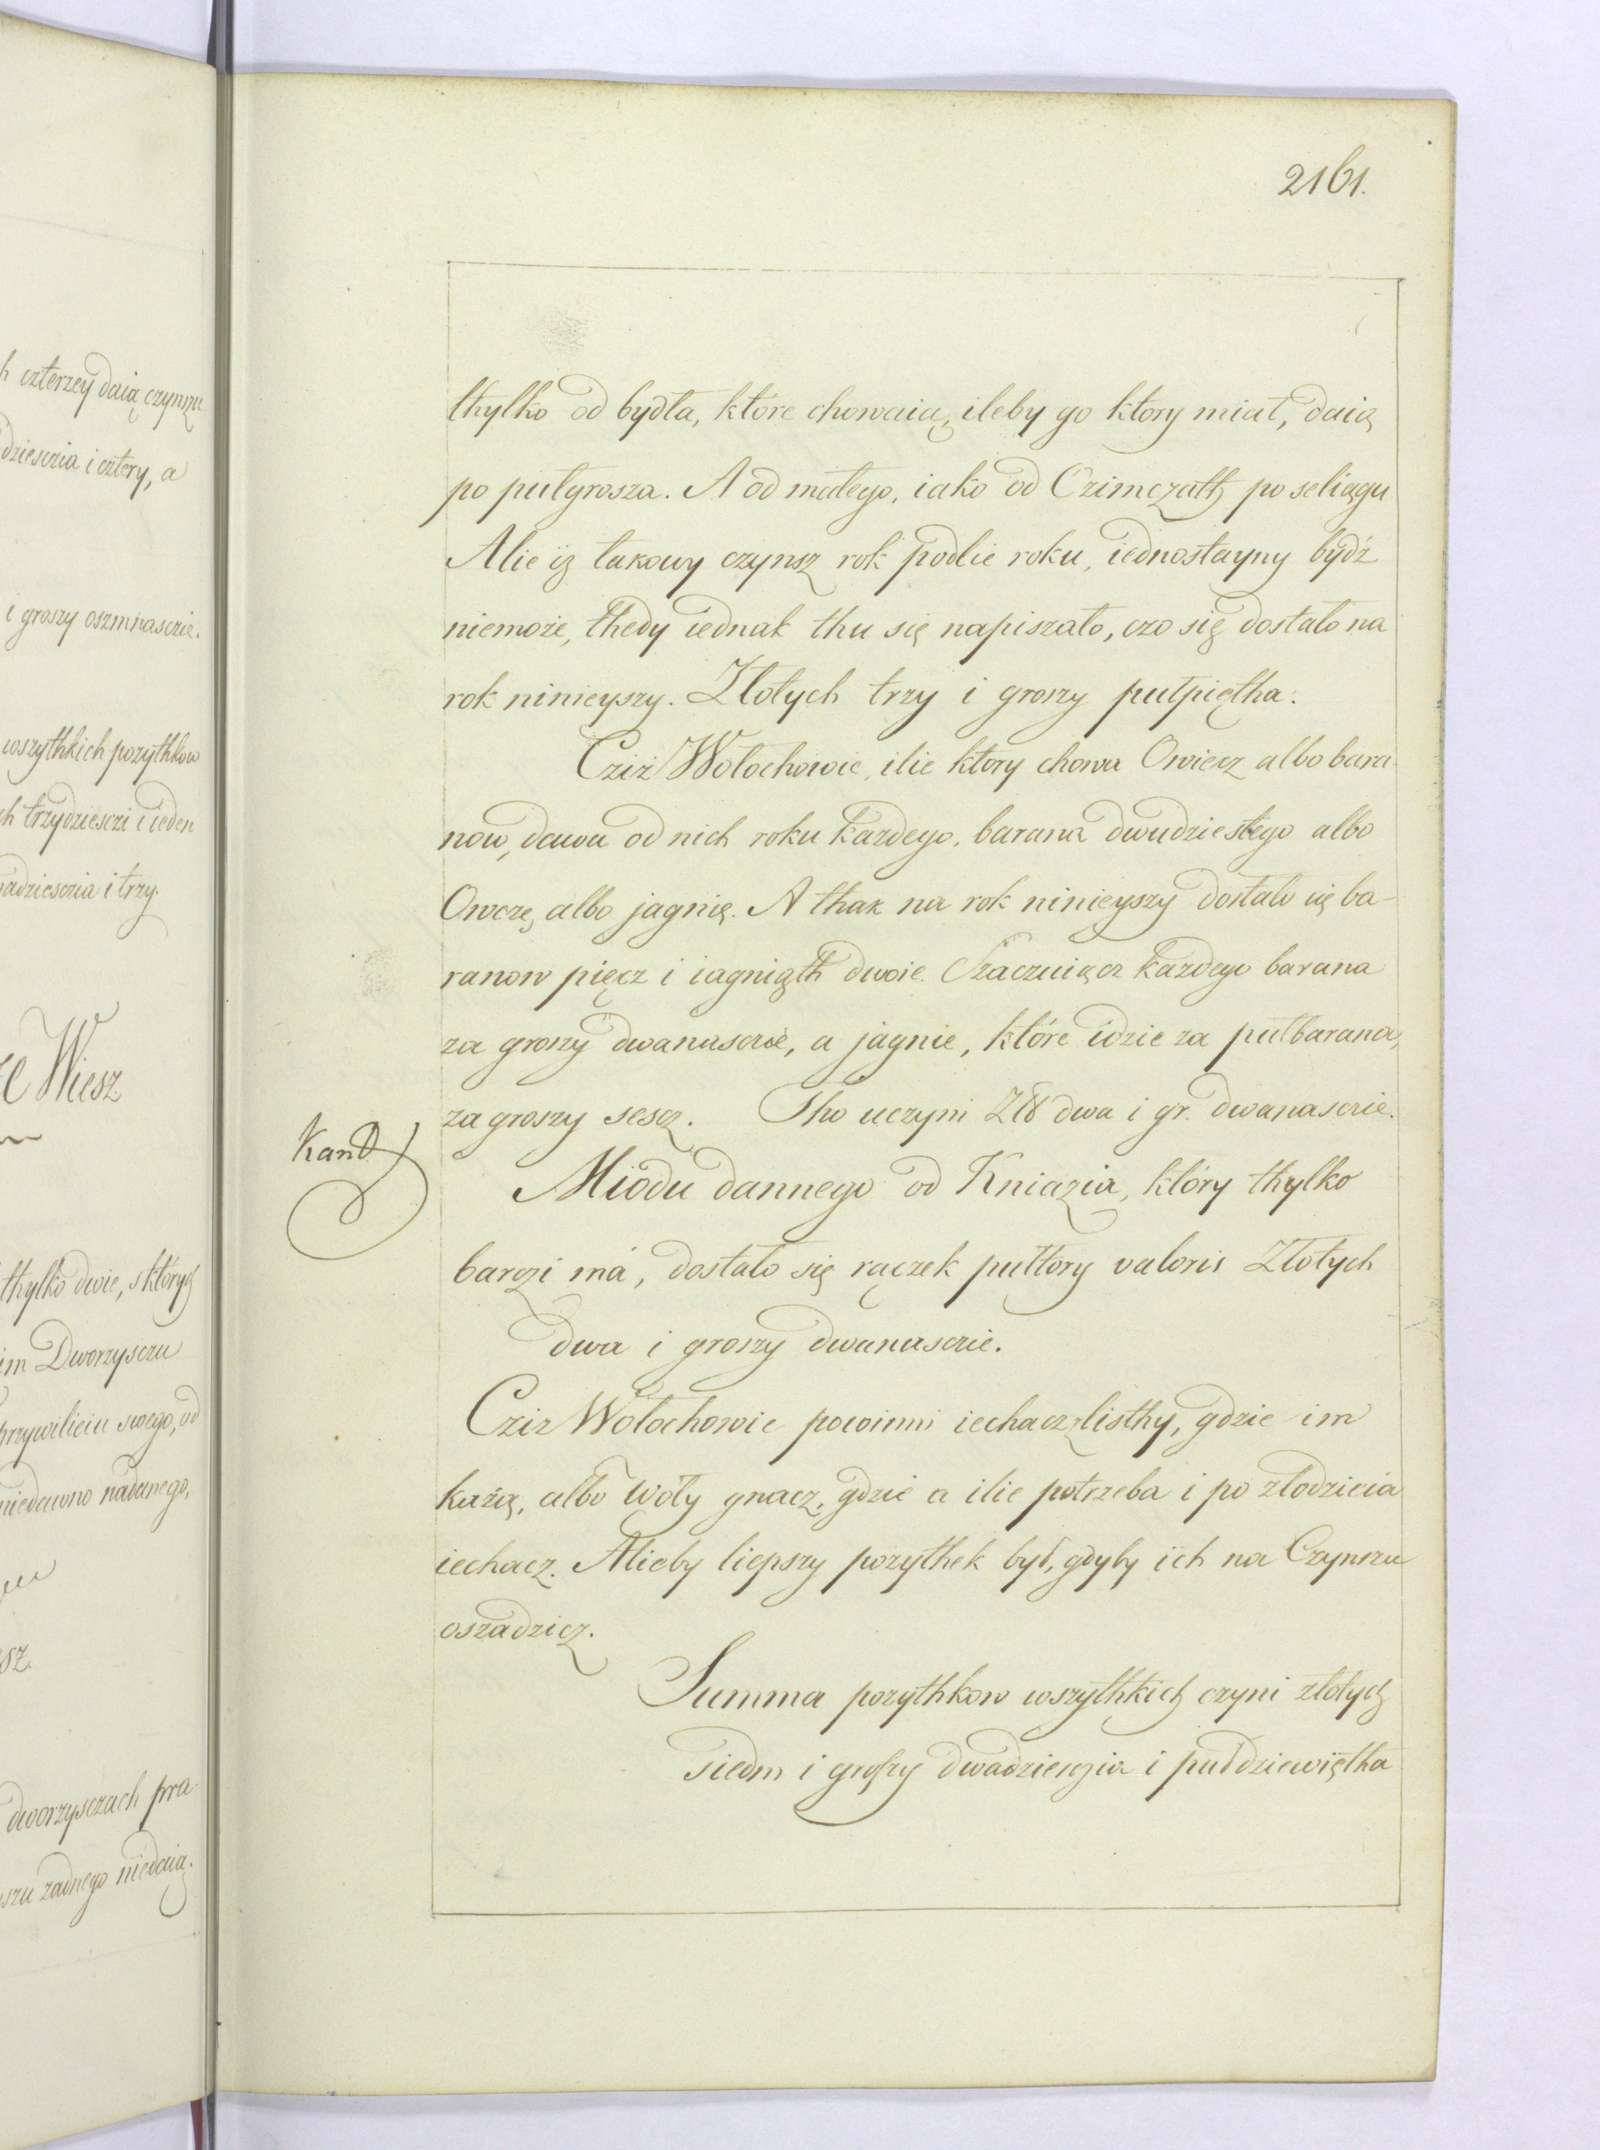 h czterzey daią czynszu
dziesczia i cztery, a
i groszy oszmnasczie.
wszythkich pozythkow
ch trzydziesczi i ieden
adziesczia i trzy.
Wiesz
thylko dwie, s których
im Dworzysczu
przywilieiu swego, od
niedawno nadanego,
sz.
dworzysczach pra-
szu żadnego niedaią.
2161.
thylko od bydła, które chowaią, ileby go który miał, daią
po pułgrosza. A od małego, iako od Czimczath po seliągu
Alie iz takowy czynsz rok podlie roku, iednostayny bydź
niemoże, thedy iednak thu się napiszało, czo się dostało na
rok ninieyszy. Złotych trzy i groszy pułpiętha.
Cziż Wołochowie, ilie który chowa Owiecz albo bara-
now, dawa od nich roku każdego, barana dwudziestego albo
Owczę, albo jagnię. A thak na rok ninieyszy dostało się ba-
ranow pięcz i iagniąth dwoie. Szaczuiącz każdego barana
za groszy dwanasczie, a jagnie, które idzie za pułbarana,
za groszy sescz. Tho uczyni Zł dwa i gr. dwanasczie.
Kand
Miodu dannego od Kniazia, który thylko
barczi má, dostało się rączek pułtory valoris Złotych
dwa i groszy dwanasczie.
Cziz Wołochowie powinni iechacz z listhy, gdzie im
każą, albo Woły gnacz, gdzie a ilie potrzeba i po złodzieia
iechacz. Alieby liepszy pozythek był, gdyby ich na Czynszu
oszadzicz.
Summa pozythkow wszythkich czyni złotych
siedm i groszy dwadziesczia i puł dziewiętha